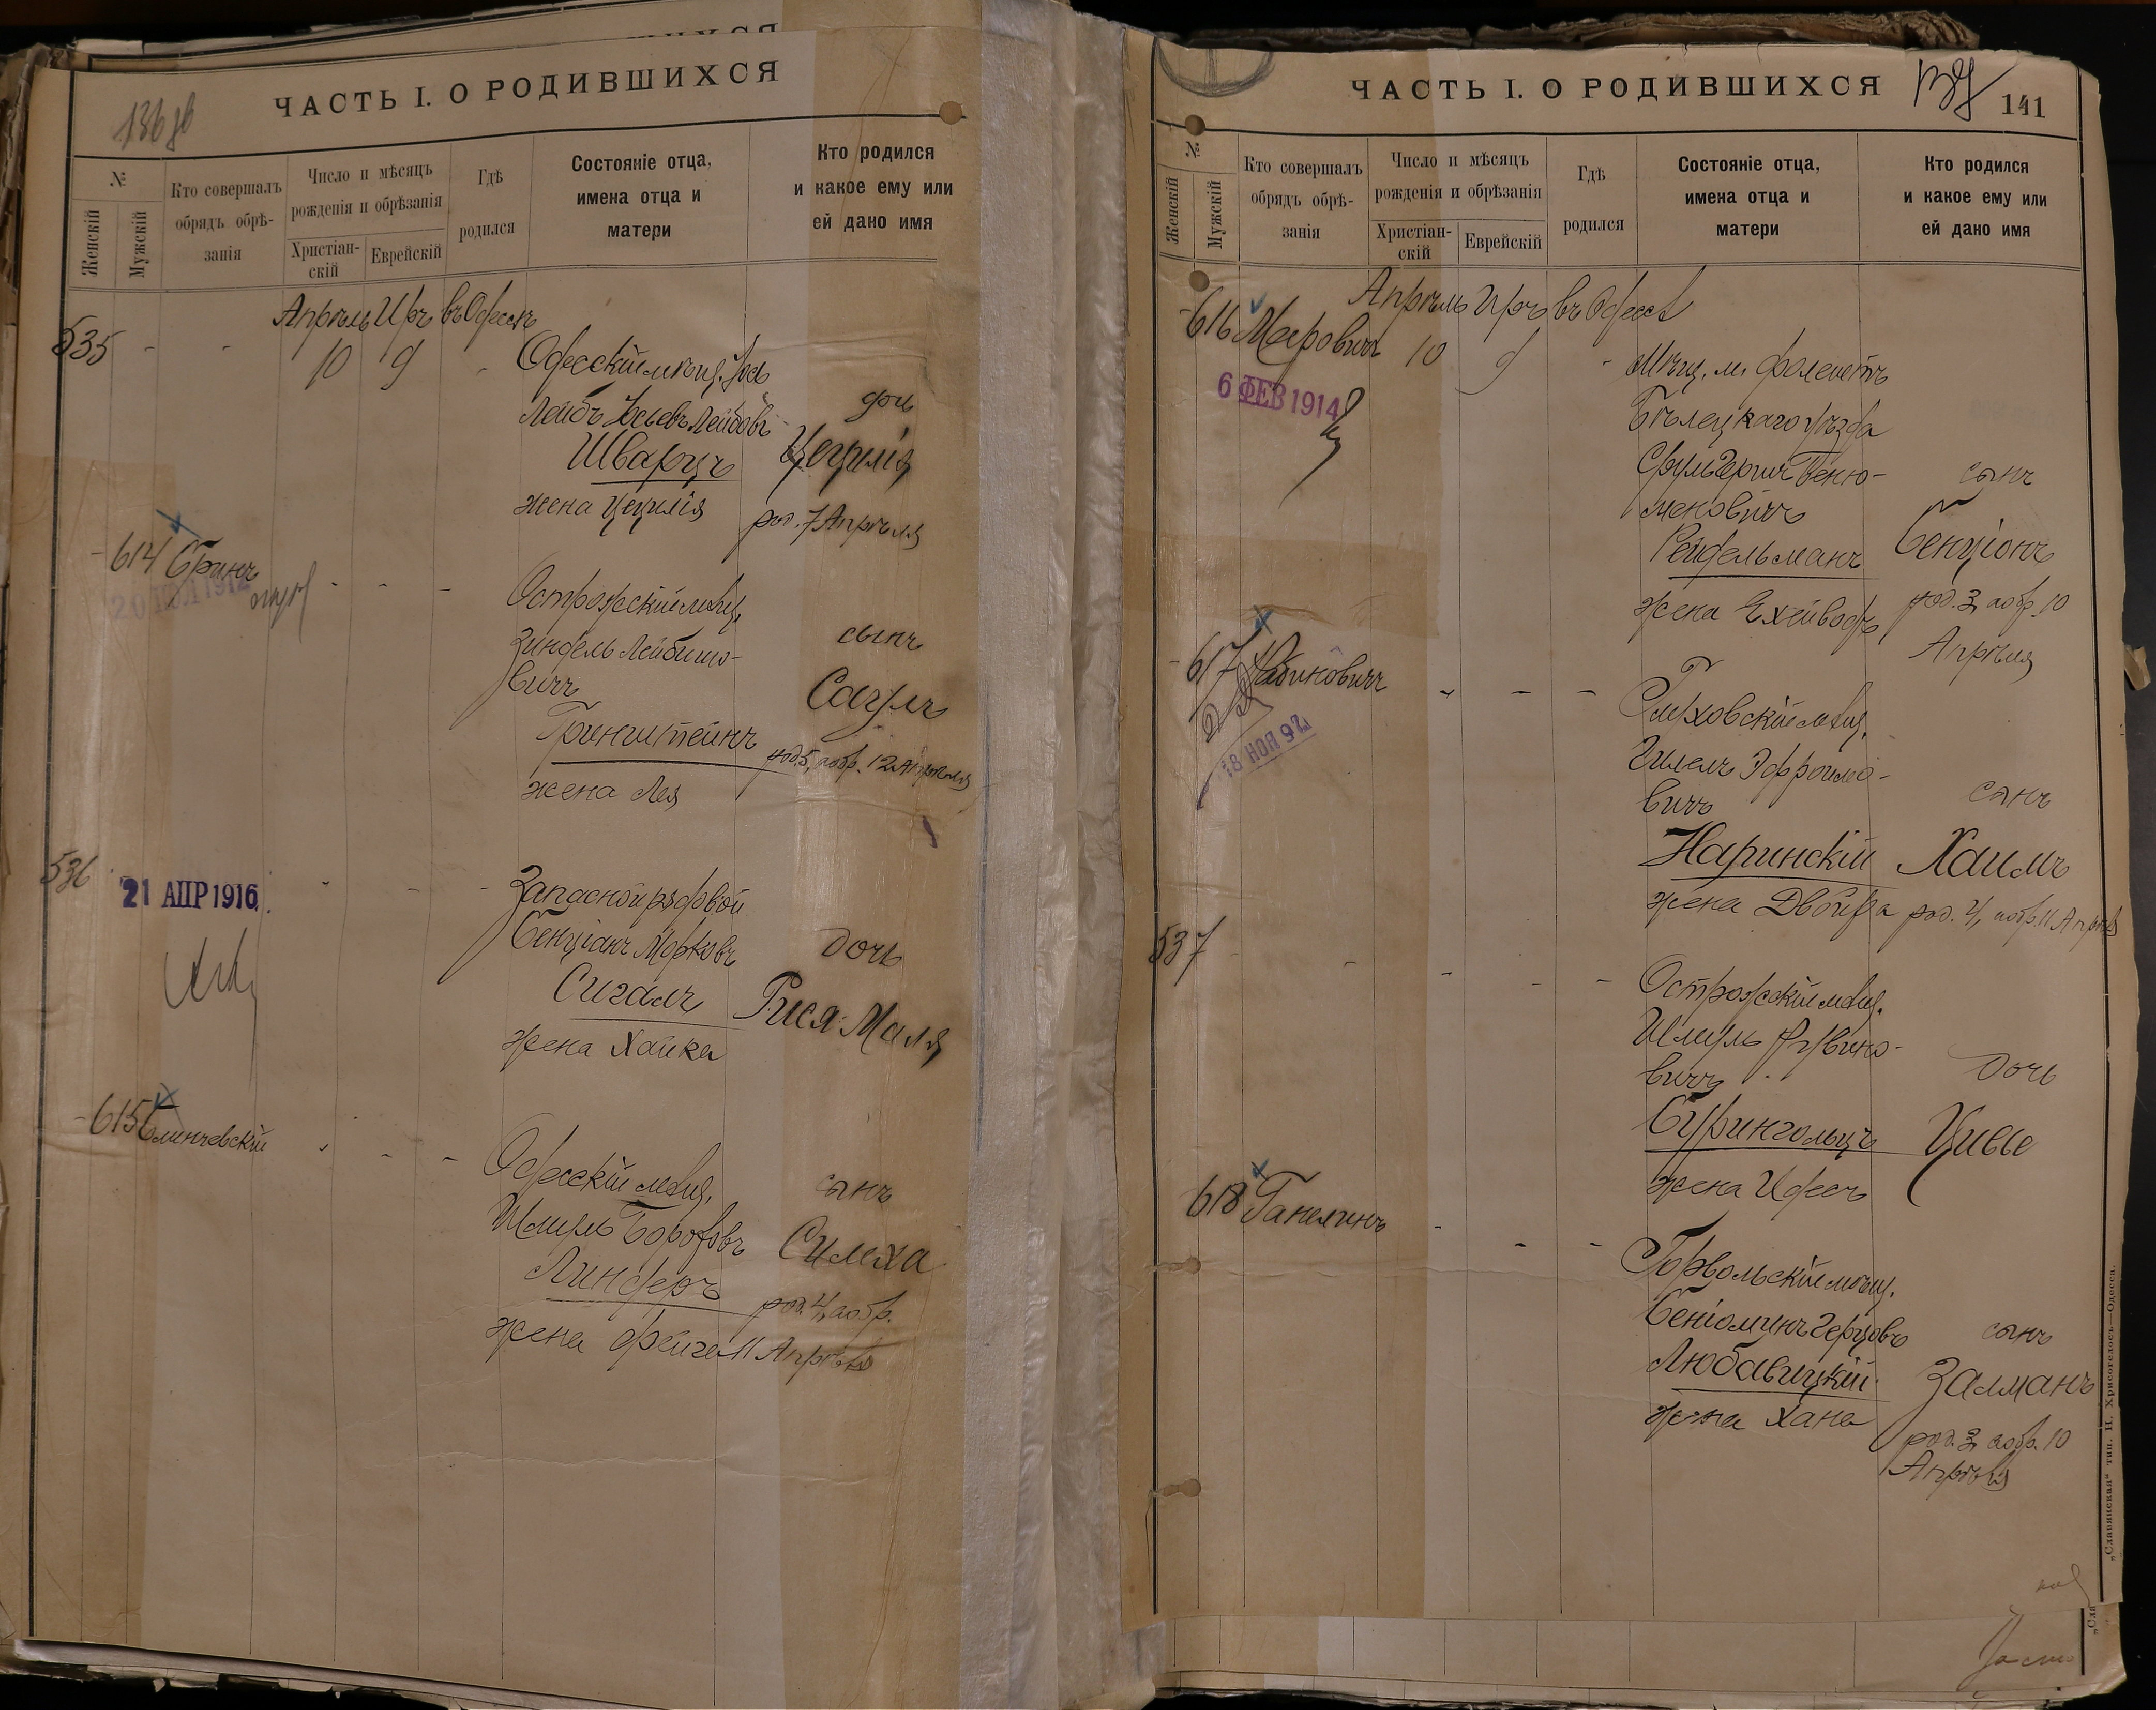 ЧАСТЬ I. О РОДИВШИХСЯ
№
Женскій
Мужскій
Кто совершалъ
обрядъ обрѣ-
занія
Число и мѣсяцъ
рожденія и обрѣзанія
Христіан-
скій
Еврейскій
Гдѣ
родился
Состояніе отца,
имена отца и
матери
Кто родился
и какое ему или
ей дано имя
Апрѣль Иръ въ Одессѣ
535 - - 10 9 -
Одесскій мѣщ. Іось
Лейбъ Іосьевъ Лейбовъ
Шварцъ
жена Цецилія
дочь
Цецилія
род. 7 Апрѣля
614
20 1912
Острожскій мѣщ.
Зиндель Лейбишо-
вичъ
Гринштейнъ
жена Лея
сынъ
Саулъ
род. 5, а обр. 12 Апрѣля
536
21 АПР 1916
Запасной рядовой
Бенціанъ Морковъ
Сигалъ
жена Хайка
дочь
Рися-Маля
615
Одесскій мѣщ.
Шмуль Бороховъ
Линдеръ
жена Фейга
сынъ
Симха
род. 4, а обр.
11 Апрѣля
ЧАСТЬ I. О РОДИВШИХСЯ
141
№
Женскій
Мужскій
Кто совершалъ
обрядъ обрѣ-
занія
Число и мѣсяцъ
рожденія и обрѣзанія
Христіан-
скій
Еврейскій
Гдѣ
родился
Состояніе отца,
имена отца и
матери
Кто родился
и какое ему или
ей дано имя
Апрѣль Иръ въ Одессѣ
616 Меровичъ 10 9 -
6 ФЕВ 1914
Мѣщ. м. Фалешты
Бѣлецкаго уѣзда
Сруль Герш Беню-
меновичъ
Рейдельманъ
жена Ехейведъ
сынъ
Бенціонъ
род. 3, а обр. 10
Апрѣля
617 Рабиновичъ
18 НОЯ 92
мѣщ.
Гилель Эфроимо-
вичъ
Наринскій
жена Двойра
сынъ
Хаимъ
род. 4, а обр. 11 Апрѣля
537
Острожскій мѣщ.
Шмуль Рувино-
вичъ
Бурингольцъ
жена Идесъ
дочь
Цивье
618 Ганелинъ
Горвольскій мѣщ.
Беніоминъ Герцовъ
Любавицкій
жена Хана
сынъ
Залманъ
род. 3, а обр. 10
Апрѣля
„Славянская" тип. Н. Хрисогелосъ—Одесса.